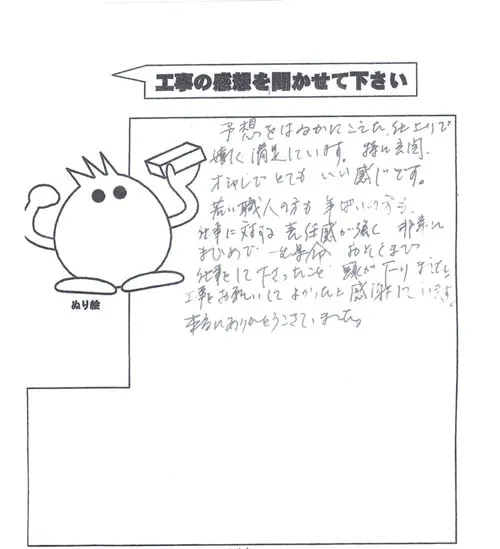 工事の感想を聞かせて下さい
予想をはるかにこえた、仕上りで
嬉しく満足しています。特に玄関、
オシャレでとてもいい感じです。
若い職人の方も年配の方も、
仕事に対する責任感が強く 非常に
まじめで 一生懸命 おそくまで
仕事をして下さったこと 頭が下りました
工事をお願いしてよかったと感謝しています。
本当にありがとうございました。
ぬり絵